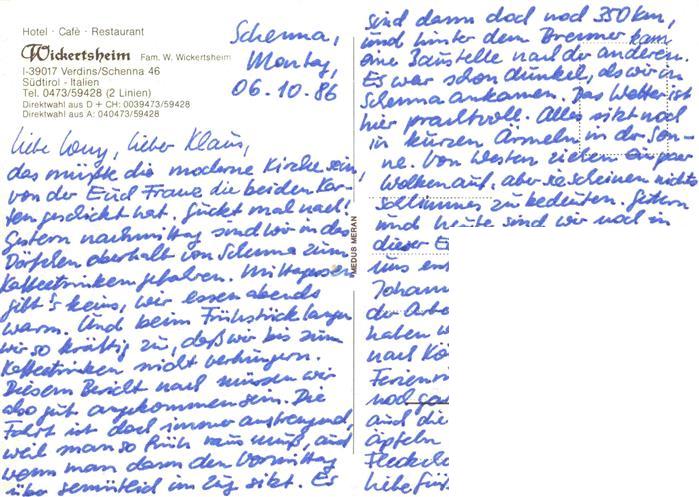 Hotel · Café · Restaurant
Wickertsheim Fam. W. Wickertsheim
I-39017 Verdins/Schenna 46
Südtirol - Italien
Tel. 0473/59428 (2 Linien)
Direktwahl aus D + CH: 0039473/59428
Direktwahl aus A: 040473/59428
Schenna,
Montag,
06.10.86
Liebe Lony, lieber Klaus,
das müßte die moderne Kirche sein,
von der Euch Franz die beiden Kar-
ten geschickt hat. Guckt mal nach!
Gestern nachmittag sind wir in das
Dörfchen oberhalb von Schenna zum
Kaffeetrinken gefahren. Mittagessen
gibt's keins, wir essen abends
warm. Und beim Frühstück langen
wir so kräftig zu, daß wir bis zum
Kaffeetrinken nicht verhungern.
Diesem Bericht nach müssen wir
also gut angekommen sein. Die
Fahrt ist doch immer anstrengend,
weil man so früh raus muß, auch
wenn man dann den Vormittag
über gemütlich im Zug sitzt. Es
MEDUS MERAN
sind dann doch noch 350 km,
und hinter dem Brenner kam
eine Baustelle nach der anderen.
Es war schon dunkel, als wir in
Schenna ankamen. Das Wetter ist
hier prachtvoll. Alles sitzt noch
in kurzen Ärmeln in der Son-
ne. Von Westen ziehen ein paar
Wolken auf, aber sie scheinen nichts
schlimmes zu bedeuten. Gestern
und heute sind wir noch in
dieser
uns
Johann
der
haben
nach
noch
auch die
Äpfeln
Liebe